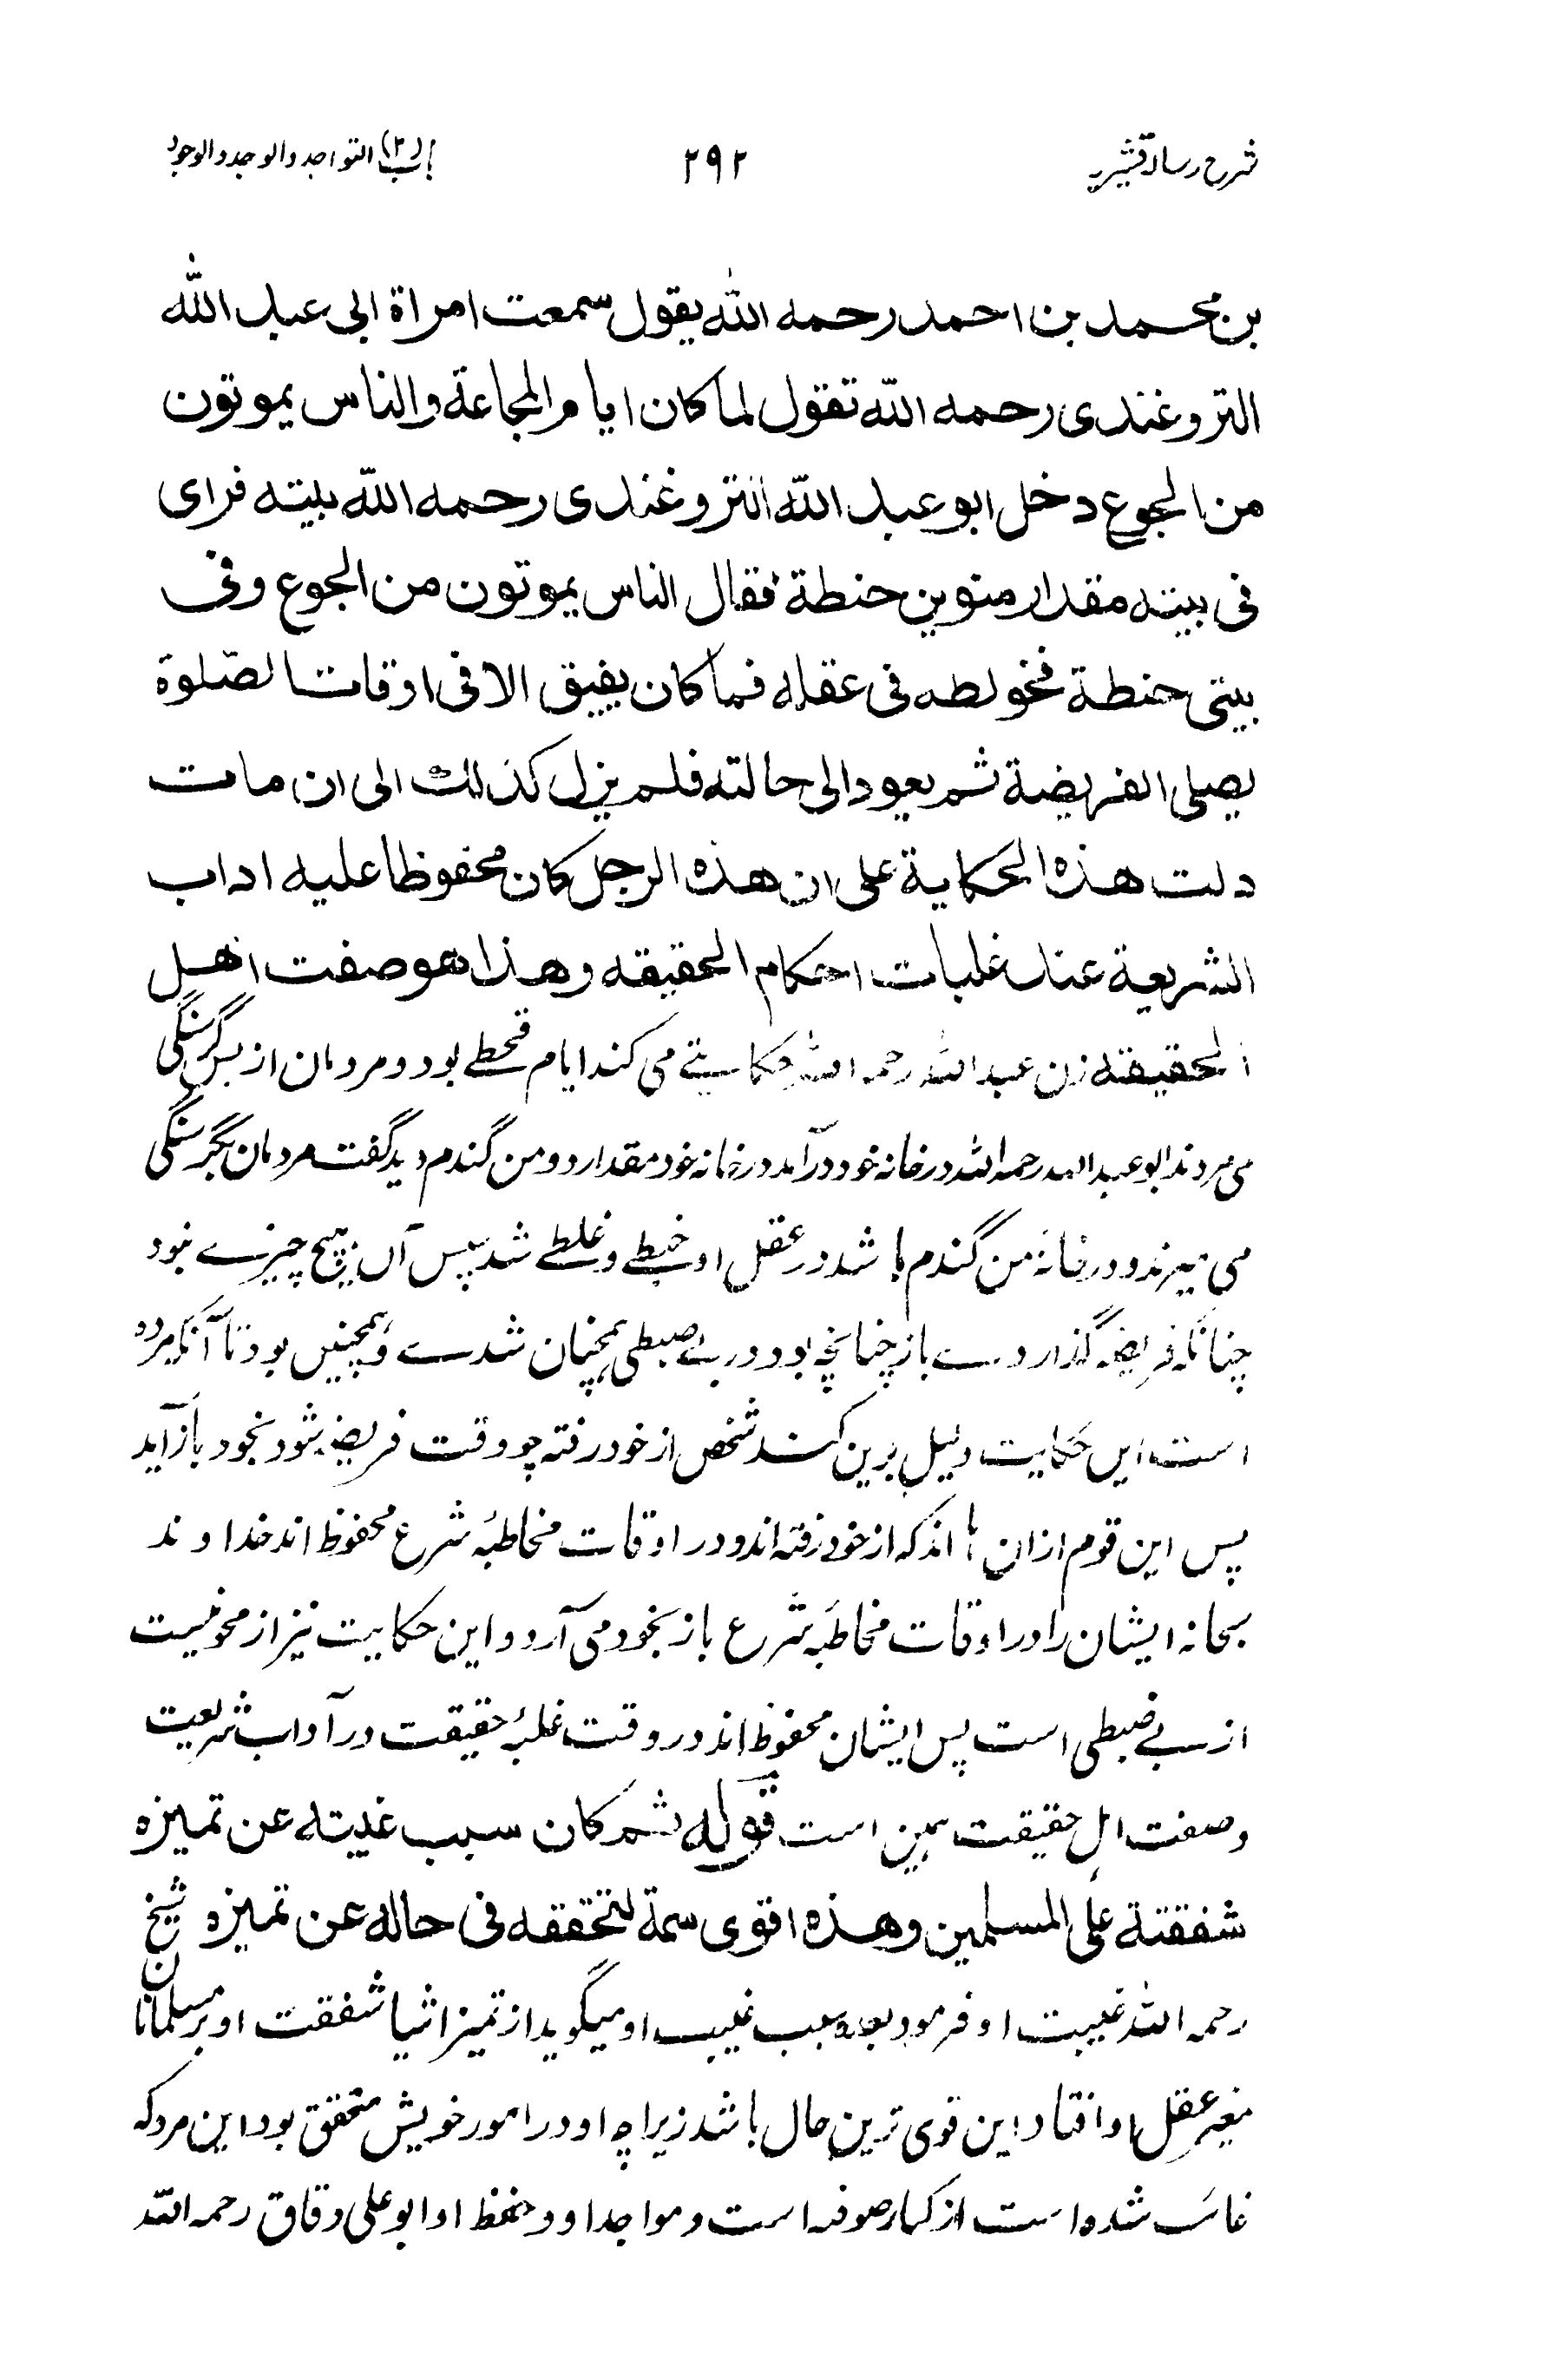 شرح رسالہ قشیریہ ۲۹۲ باب (۲) التواجد والوجد والوجود
بن محمد بن احمد رحمه الله یقول سمعت امراة ابی عبد الله
التروغندی رحمه الله تقول لما کان ایام المجاعة والناس یموتون
من الجوع دخل ابو عبد الله التروغندی رحمه الله بیته فرای
فی بیته مقدار منوین حنطة فقال الناس یموتون من الجوع وفی
بیتی حنطة فخولط فی عقله فما کان یفیق الا فی اوقات الصلوة
یصلی الفریضة ثم یعود الی حالته فلم یزل کذلك الی ان مات
دلت هذه الحکایة علی ان هذه الرجل کان محفوظا علیه اداب
الشریعة عند غلبات احکام الحقیقه وهذا هو صفت اهل
الحقیقة زن عبد الله رحمه الله حکایتے می کند ایام قحطے بود و مردمان از بس گرسنگی
می مردند ابو عبد الله رحمه الله در خانه خود در آمد در خانه خود مقدار دو من گندم دید گفت مردمان بگرسنگی
می میرند و در خانۂ من گندم باشد در عقل او خبطے و غلطے شد پس آن هیچ چیزے نبود
چنانکه فریضه گذاردے باز چنانچه بود در بے ضبطی همچنان شدے و همچنیں بود تا آنکه مرده
است ایں حکایت دلیل برین کند شخص از خود رفته چو وقت فریضه شود بخود باز آید
پس این قوم از ان ها اند که از خود رفته اند و در اوقات مخاطبۂ شرع محفوظ اند خداوند
سبحانه ایشان را در اوقات مخاطبۂ شرع باز بخود می آرد و این حکایت نیز از محویت
از بے ضبطی است پس ایشان محفوظ اند در وقت غلبۂ حقیقت در آداب شریعت
و صفت اهل حقیقت همین است قوله ثم کان سبب غیبته عن تمیزه
شفقتة علی المسلمین وهذه اقوی سمة لتحققه فی حاله عن تمیزه شیخ
رحمه الله غیبت او فرموده بود سبب غیبت او میگوید از تمیز اشیا شفقت او بر مسلمانان
مغیر عقل او افتاد این قوی ترین حال باشد زیراچه او در امور خویش متحقق بود این مرد که
غائب شده است از کبار صوفیه است و مواجد او و حفظ او ابو علی دقاق رحمه الله